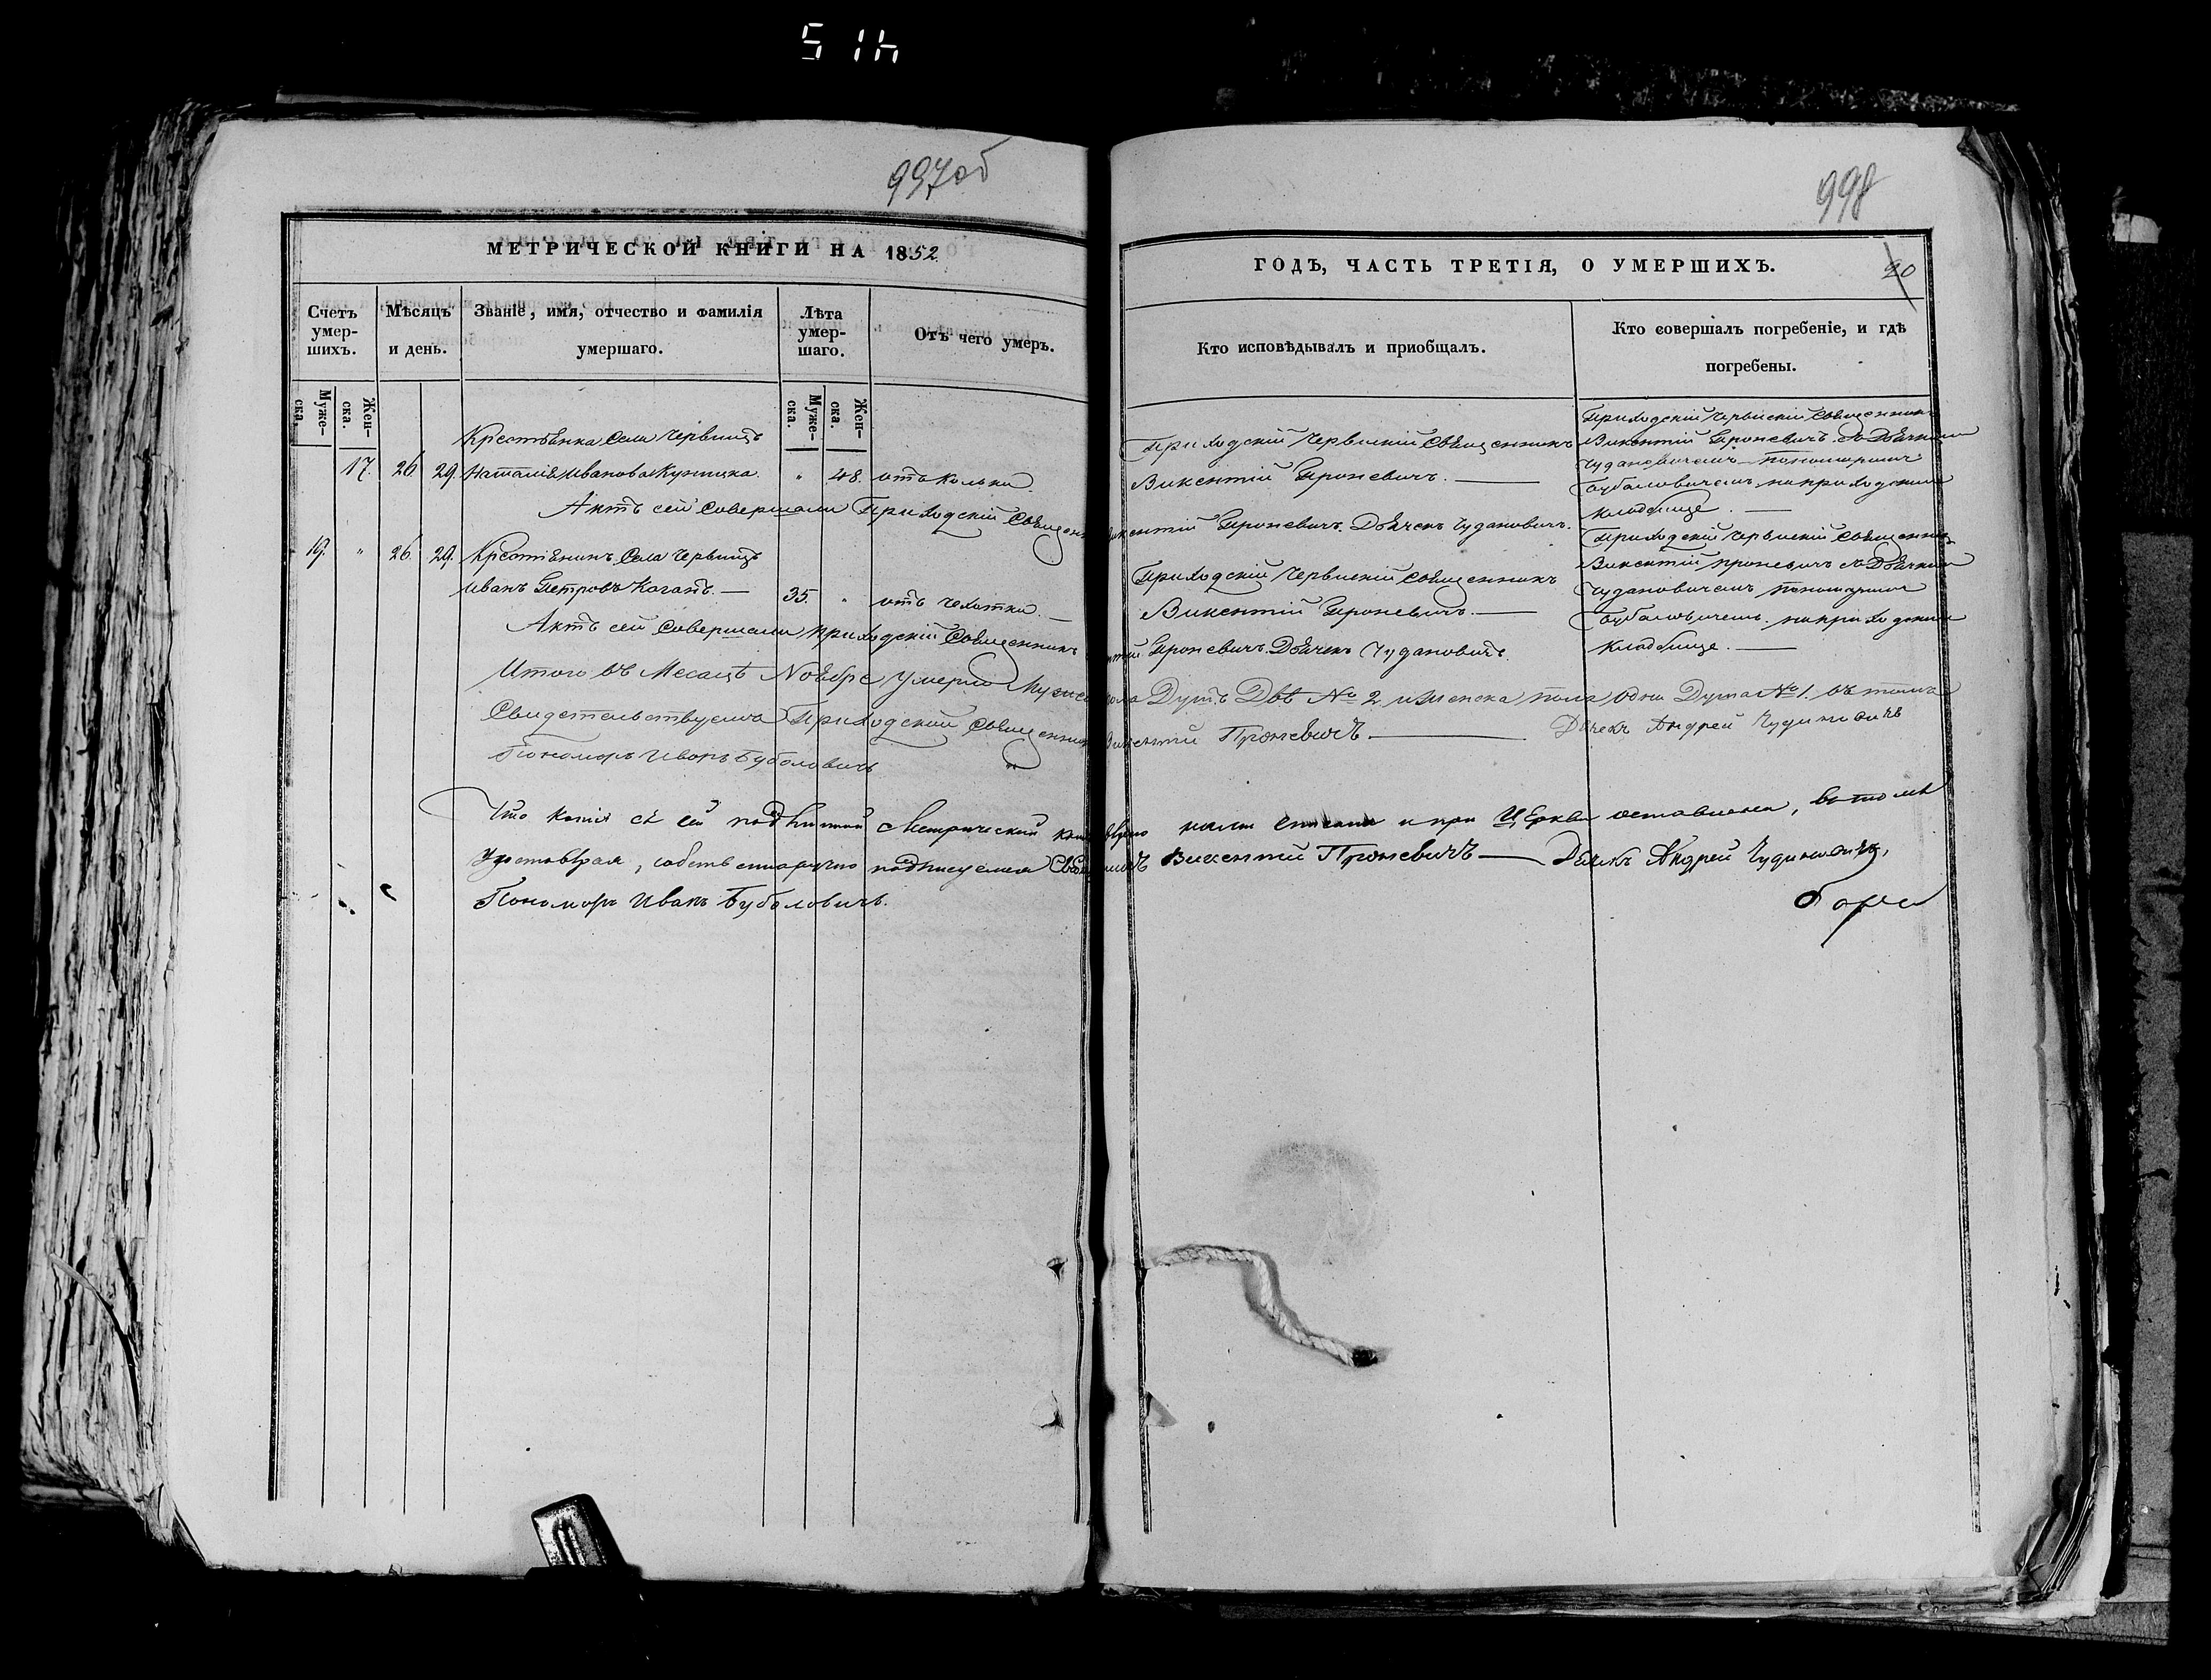 514
997об
998
МЕТРИЧЕСКОЙ КНИГИ НА 1852
ГОДЪ, ЧАСТЬ ТРЕТІЯ, О УМЕРШИХЪ.
20
Счетъ умер-шихъ.
Мѣсяцъ и день.
Званіе, имя, отчество и фамилія умершаго.
Лѣта умер-шаго.
Отъ чего умеръ.
Кто исповѣдывалъ и приобщалъ.
Кто совершалъ погребеніе, и гдѣ погребены.
Муже-ска.
Жен-ска.
Муже-ска.
Жен-ска.
Крестьянка Села Червищъ
17. 26 29. Наталія Иванова " 48. отъ Кольки.
Приходскій Червискій Священникъ
Викентій Проневичъ.
Приходскій Червискій Священникъ
Викентій Проневичъ съ Дьячкомъ
Чудановичемъ Пономаремъ
Бубаловичемъ на приходскомъ
кладбище.
Актъ сей Совершали Приходскій Священ Викентій Проневичъ. Дьячекъ Чудановичъ.
19. " 26. 29. Крестьянинъ Села Червищъ
Иванъ Петровъ Когатъ. 35. " отъ чехотки.
Приходскій Червискій Священникъ
Викентій Проневичъ.
Приходскій Червискій Священник
Викентій Проневичъ съ Дьячком
Чудановичемъ Пономаремъ
Бубаловичемъ. на приходском
кладбище.
Актъ сей Совершали Приходскій Священникъ Проневичъ. Дьячекъ Чудановичъ.
Итого въ Месацѣ Ноябре умерло Мужеска пола Душъ Двѣ № 2 и женска пола одна Душа № 1. въ томъ
Свидетельствуемъ Приходский Священник Викентий Проневичъ Дьячекъ Андрей Чудановичъ
Пономоръ Иванъ Буболовичъ
Что копія съ сей Метрической нами списана и при Церкви оставлена, въ томъ
удостоверая, собственноручно подписуемся Викентий Проневичъ Дьячекъ Андрей Чудановичъ,
Пономоръ Иванъ Буболовичъ.